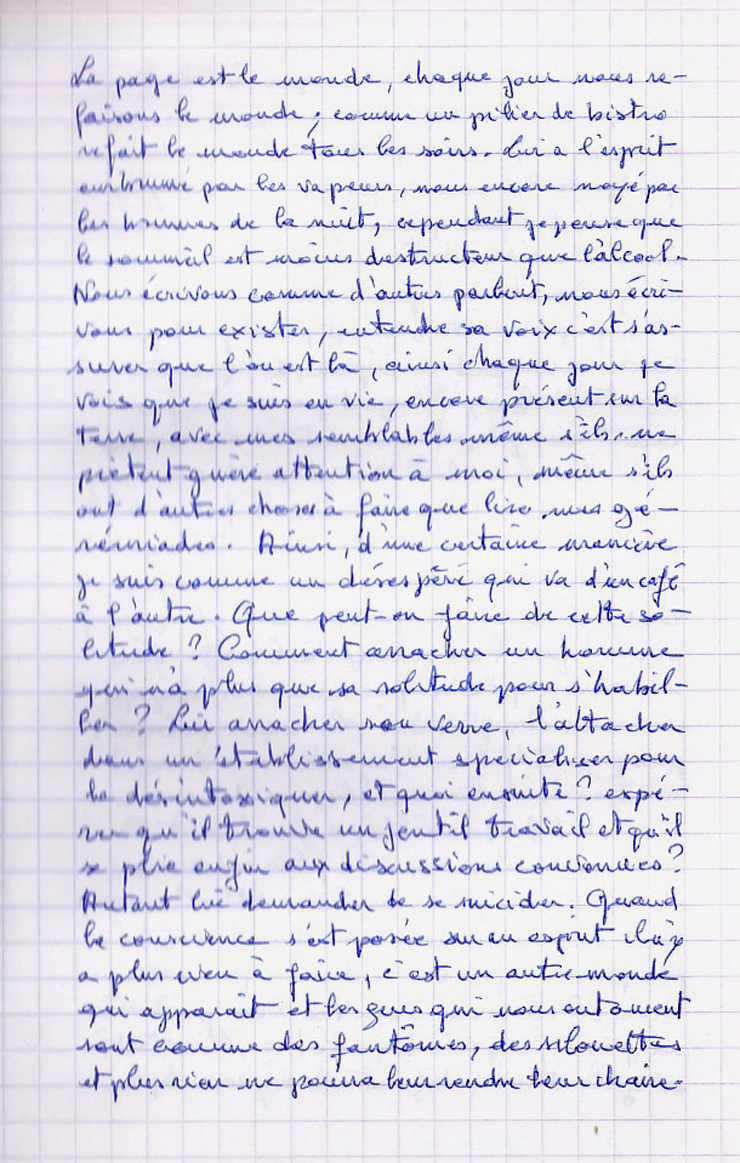 La page est le monde, chaque jour nous re-
faisons le monde ; comme un pilier de bistro
refait le monde tous les soirs. Lui a l'esprit
embrumé par les vapeurs, nous encore noyé par
les brumes de la nuit, cependant je pense que
le sommeil est moins destructeur que l'alcool.
Nous écrivons comme d'autres parlent, nous écri-
vons pour exister, entendre sa voix c'est s'as-
surer que l'on est là, ainsi chaque jour je
vois que je suis en vie, encore présent sur la
Terre, avec mes semblables même s'ils ne
prêtent guère attention à moi, même s'ils
ont d'autres choses à faire que lire mes gé-
rémiades. Ainsi, d'une certaine manière
je suis comme un désespéré qui va d'un café
à l'autre. Que peut-on faire de cette so-
litude ? Comment arracher un homme
qui n'a plus que sa solitude pour s'habil-
ler ? Lui arracher son verre, l'attacher
dans un établissement spécialiser pour
le désintoxiquer, et quoi ensuite ? espé-
rer qu'il trouve un jentil travail et qu'il
se plie enfin aux discussions convenues ?
Autant lui demander de se suicider. Quand
la conscience s'est posée sur un esprit il n'y
a plus rien à faire, c'est un autre monde
qui apparait et les gens qui nous entourent
sont comme des fantômes, des silouettes
et plus rien ne pourra leur rendre leur chaire.